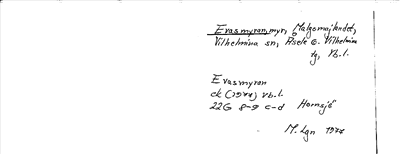 Evasmyran, myr, Malgomajlandet,
Vilhelmina sn, Åsele o. Vilhelmina
tg, Vb.l.
Evasmyran
ek (1974) Vb.l.
22G 8-9 c-d Hornsjö
M. Lgn 1974